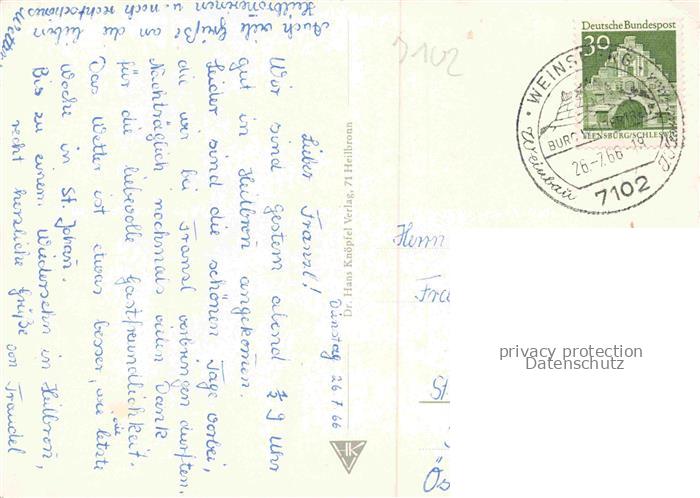 Dienstag 26.7.66
Lieber Franzl!
Wir sind gestern abend ½ 9 Uhr
gut in Heilbronn angekommen.
Leider sind die schönen Tage vorbei,
die wir bei Franzl verbringen durften.
Nachträglich nochmals vielen Dank
für die liebevolle Gastfreundlichkeit.
Das Wetter ist etwas besser, wie die letzte
Woche in St. Johann.
Bis zu einem Wiedersehn in Heilbronn,
recht herzliche Grüße von Traudel
Auch viele Grüße an die lieben
Heilbronnerinnen u. noch
Dr. Hans Knöpfel Verlag, 71 Heilbronn
HK
7102
Deutsche Bundespost
30
FLENSBURG/SCHLESWIG
WEINSBERG
BURG
26.-7.66-19
Weinbau
7102
Herrn
Fra
S
Ös
privacy protection
Datenschutz